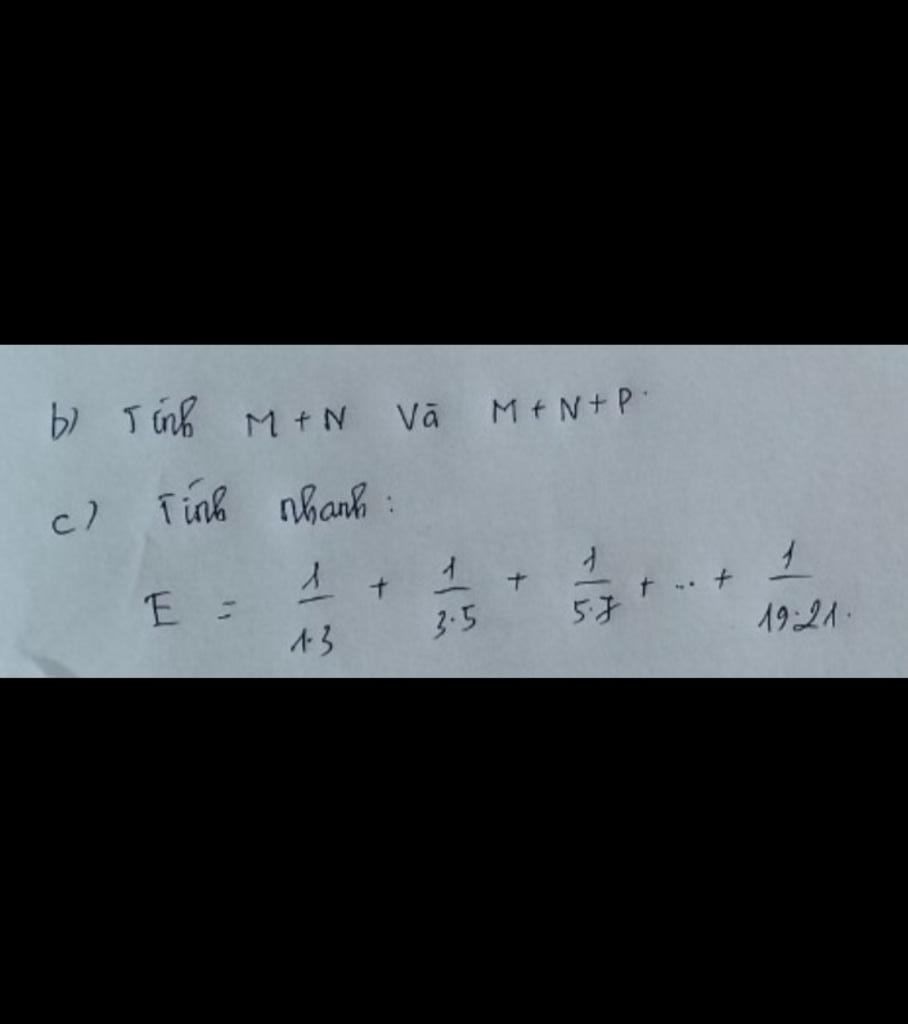 b) Tính M + N Và M + N + P.
c) Tính nhanh :
E = 1/1.3 + 1/3.5 + 1/5.7 + ... + 1/19.21.